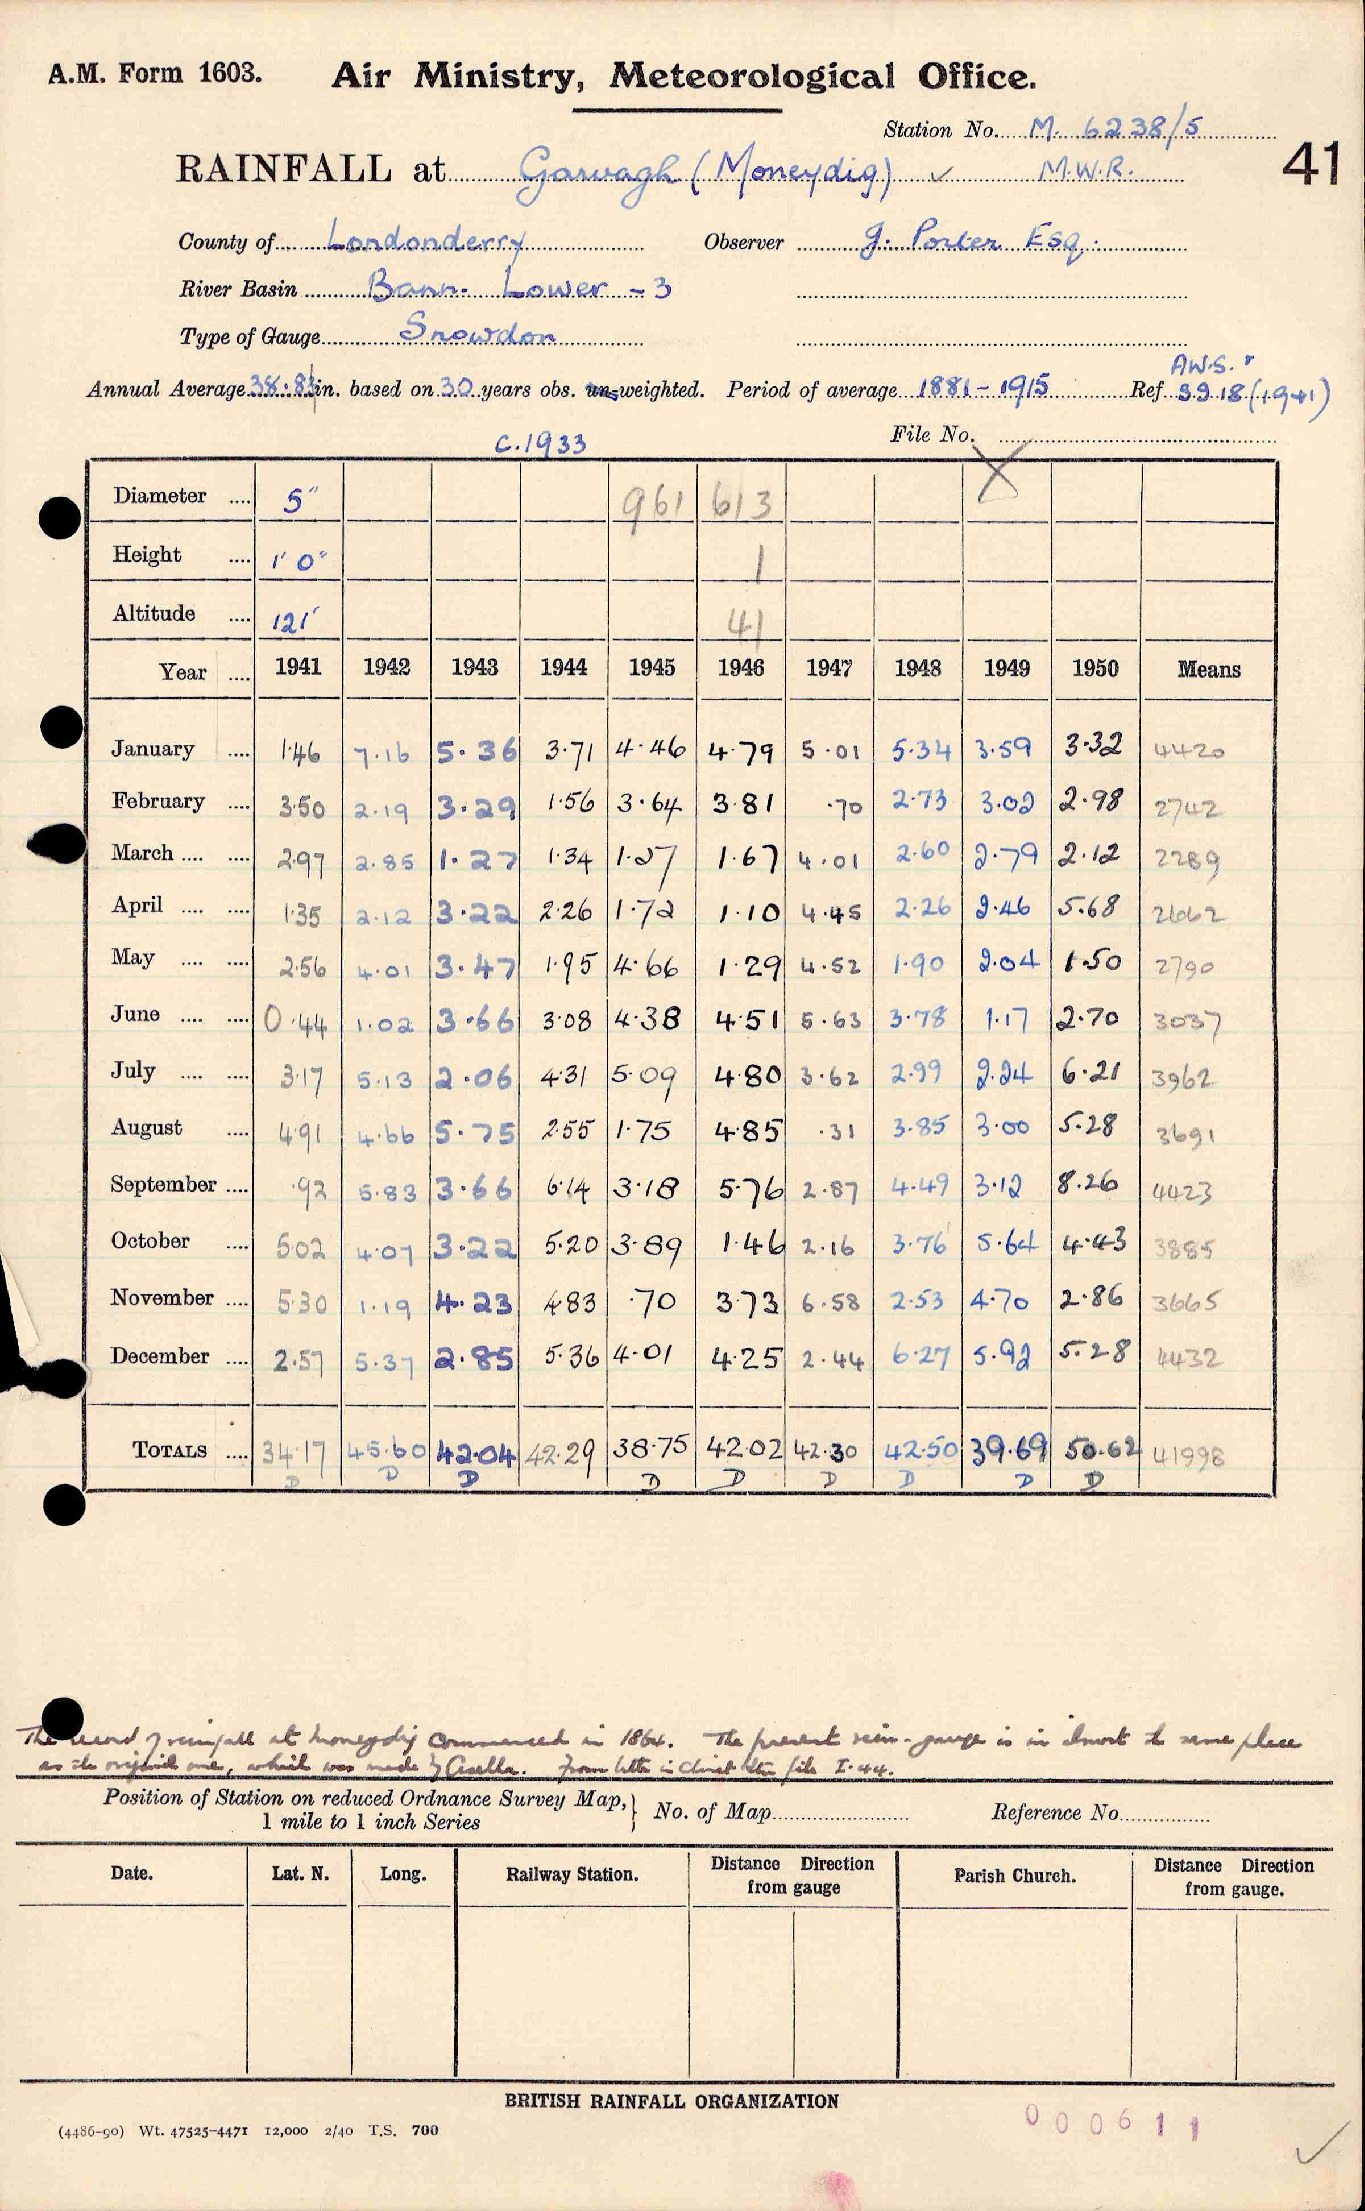 A.M. Form 1603. Air Ministry, Meteorological Office.
Station No. M. 6238/5
41
RAINFALL at Garvagh (Moneydig) ✓ M.W.R.
County of Londonderry Observer J. Porter Esq.
River Basin Bann. Lower - 3
Type of Gauge Snowdon
A.W.S.
Annual Average 38.83 in. based on 30 years obs. un-weighted. Period of average 1881 - 1915 Ref. 3918 (1941)
File No.
c. 1933
Diameter .... 5" 961 613
Height .... 1' 0" 1
Altitude .... 121' 41
Year .... 1941 1942 1943 1944 1945 1946 1947 1948 1949 1950 Means
January .... 1.46 7.16 5.36 3.71 4.46 4.79 5.01 5.34 3.59 3.32 4420
February .... 3.50 2.19 3.29 1.56 3.64 3.81 .70 2.73 3.02 2.98 2742
March .... .... 2.97 2.85 1.27 1.34 1.27 1.67 4.01 2.60 2.79 2.12 2289
April .... .... 1.35 2.12 3.22 2.26 1.72 1.10 4.45 2.26 2.46 5.68 2662
May .... .... 2.56 4.01 3.47 1.95 4.66 1.29 4.52 1.90 2.04 1.50 2790
June .... .... 0.44 1.02 3.66 3.08 4.38 4.51 5.63 3.78 1.17 2.70 3037
July .... .... 3.17 5.13 2.06 4.31 5.09 4.80 3.62 2.99 2.24 6.21 3962
August .... 4.91 4.66 5.75 2.55 1.75 4.85 .31 3.85 3.00 5.28 3691
September .... .92 5.83 3.66 6.14 3.18 5.76 2.87 4.49 3.12 8.26 4423
October .... 5.02 4.07 3.22 5.20 3.89 1.46 2.16 3.76 5.64 4.43 3885
November .... 5.30 1.19 4.23 4.83 .70 3.73 6.58 2.53 4.70 2.86 3665
December .... 2.57 5.37 2.85 5.36 4.01 4.25 2.44 6.27 5.92 5.28 4432
TOTALS .... 34.17 45.60 42.04 42.29 38.75 42.02 42.30 42.50 39.69 50.62 41998
D D D D D D D D D
The record of rainfall at Moneydig commenced in 1864. The present rain-gauge is in almost the same place
as the original one, which was made by Casella. From letter in District file I.44.
Position of Station on reduced Ordnance Survey Map, } No. of Map Reference No.
1 mile to 1 inch Series
Date. Lat. N. Long. Railway Station. Distance Direction from gauge Parish Church. Distance Direction from gauge.
BRITISH RAINFALL ORGANIZATION
(4486-90) Wt. 47525-4471 12,000 2/40 T.S. 700
000611